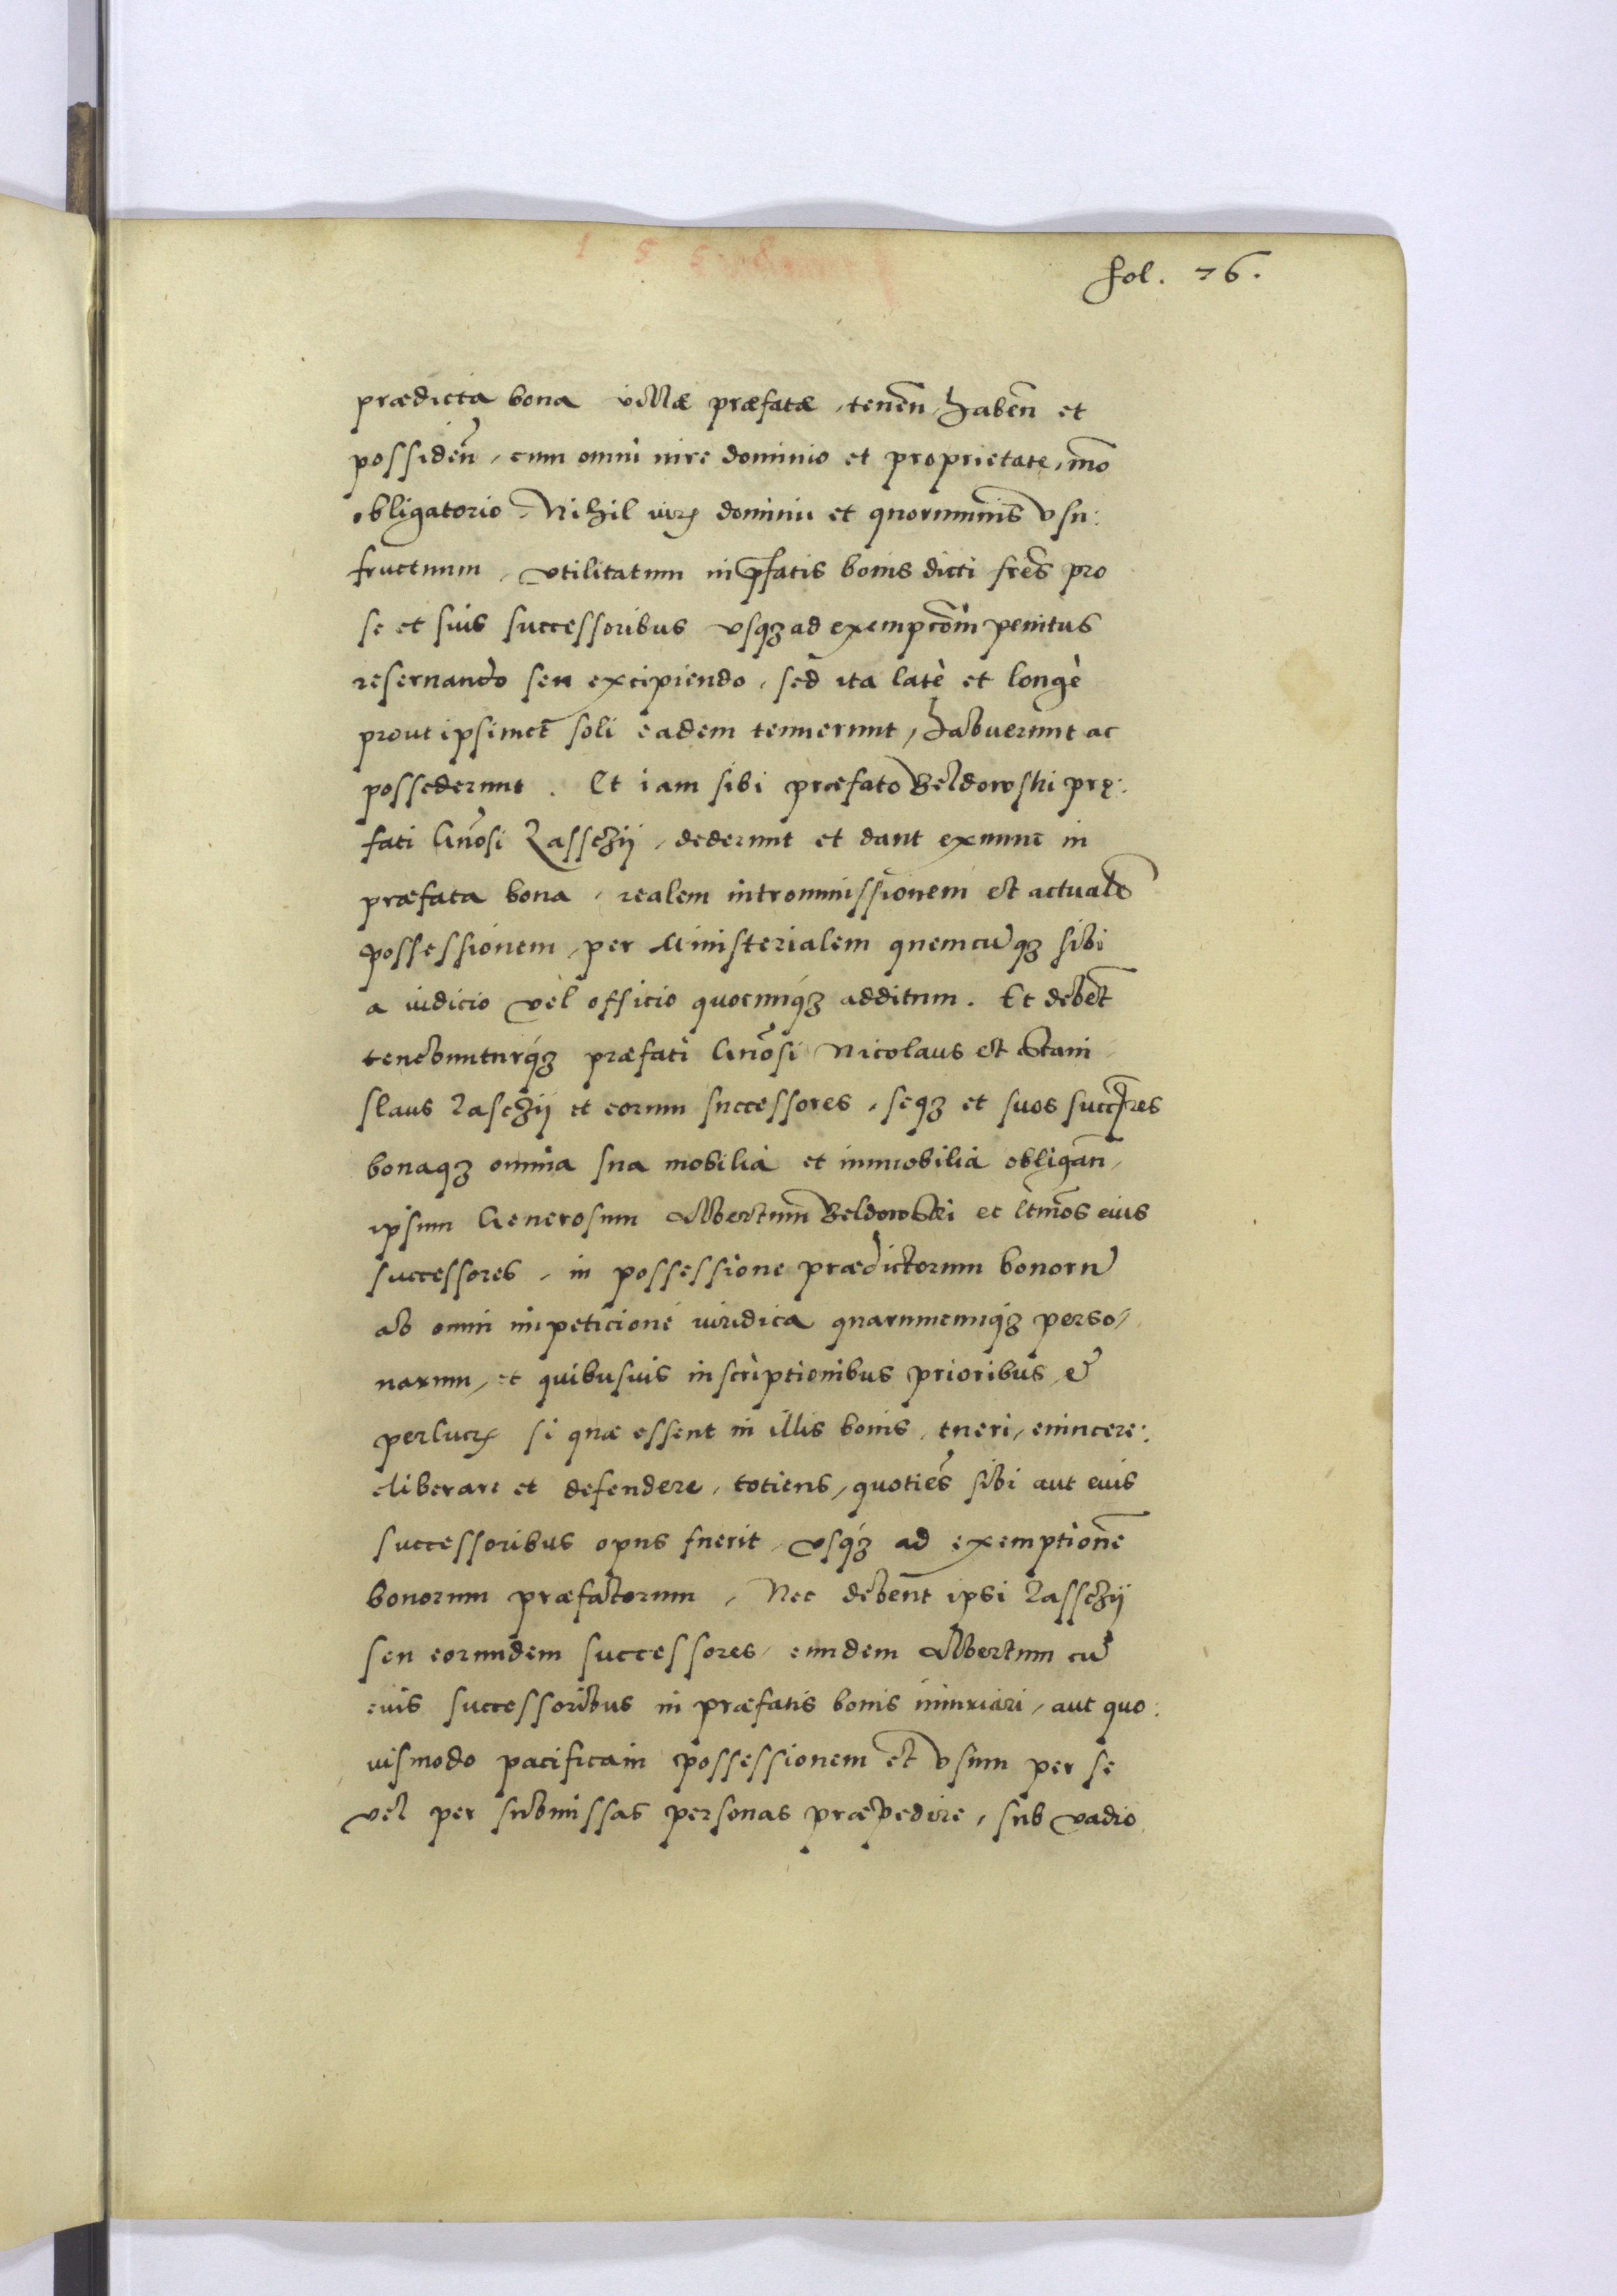 1 5 5 8
fol. 76.
prædicta bona villæ præfatæ, tenen̄, haben̄ et
possiden̄, cum omni iure dominio et proprietate, mō
obligatorio. Nihil iur dominii et quorumuis vsu:
fructuum, vtilitatum in pfatis bonis dicti fres̄ pro
se et suis successoribus vsqz ad exempcōm penitus
reseruando seu excipiendo, sed ita latè et longè
prout ipsimet soli eadem tenuerunt, habuerunt ac
possederunt. Et iam sibi præfato Beldowski prę:
fati Gnōsi Lasschii, dederunt et dant exnunc in
præfata bona, realem intromissionem et actualē
possessionem, per Ministerialem quemcūqz sibi
a iudicio vel officio quocunqz additum. Et debent̄
tenebunturqz præfati Gnōsi Nicolaus et Stani
slaus Laschii et eorum successores, seqz et suos succres
bonaqz omnia sua mobilia et immobilia obligan̄,
ipsum Generosum Albertum Beldowski et ltmōs eius
successores, in possessione prædictorum bonorū
ab omni impeticione iuridica quarumcunqz perso,
narum, et quibusuis inscriptionibus prioribus, et
perlucr si quæ essent in illis bonis, tueri, euincere:
eliberare et defendere, totiens, quoties̄ sibi aut eius
successoribus opus fuerit, vsqz ad exemptionē
bonorum præfatorum. Nec debent ipsi Lasschii
seu eorundem successores, eundem Albertum cū
eius successoribus in præfatis bonis iniuriari, aut quo:
uismodo pacificam possessionem et vsum per se
vel per submissas personas præpedire, sub vadio